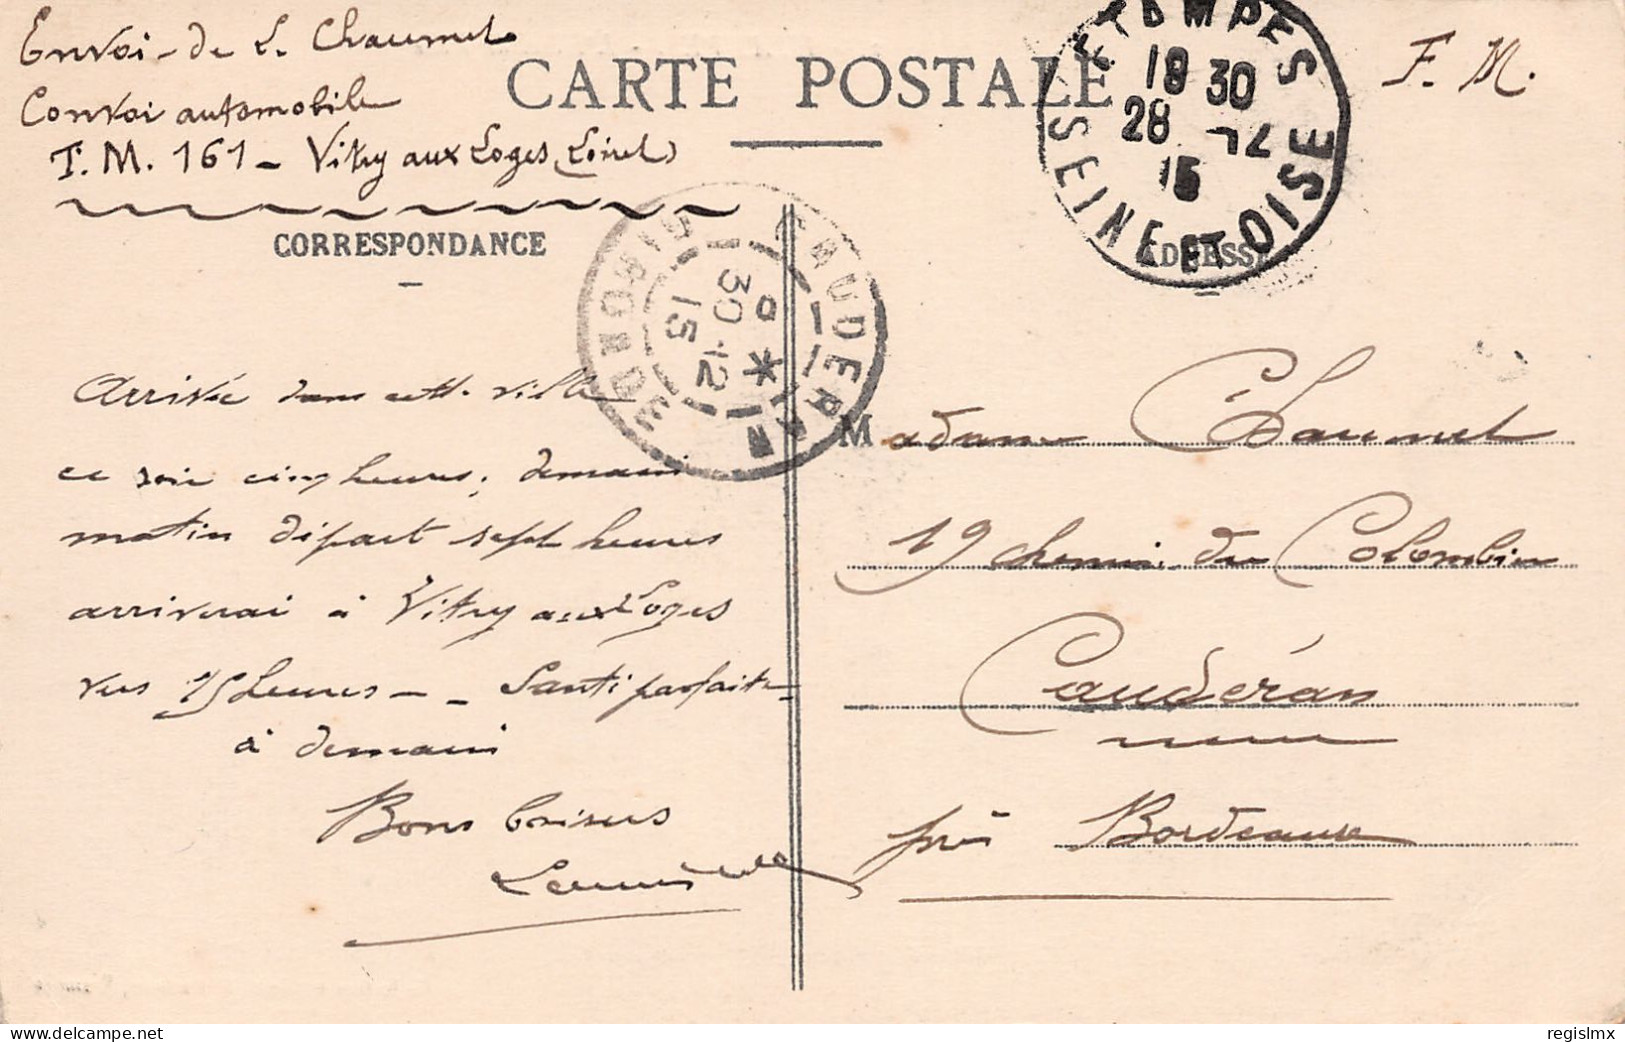 Envoi - de L. Chaumel
Convoi automobile
T. M. 161 - Vitry aux Loges (Loiret)
CARTE POSTALE
F. M.
ETAMPES
18 30
28 -12
15
SEINE ET OISE
CORRESPONDANCE
ADRESSE
CAUDERAN
30 -12
15
GIRONDE
Arrivée dans cette ville
ce soir cinq heures, demain
matin départ sept heures
arriverai à Vitry aux Loges
vers 15 heures - - Santé parfaite -
à demain
Bons baisers
Madame Chaumel
19 chemin du Colombier
Caudéran
près Bordeaux
delcampe.net
regislmx